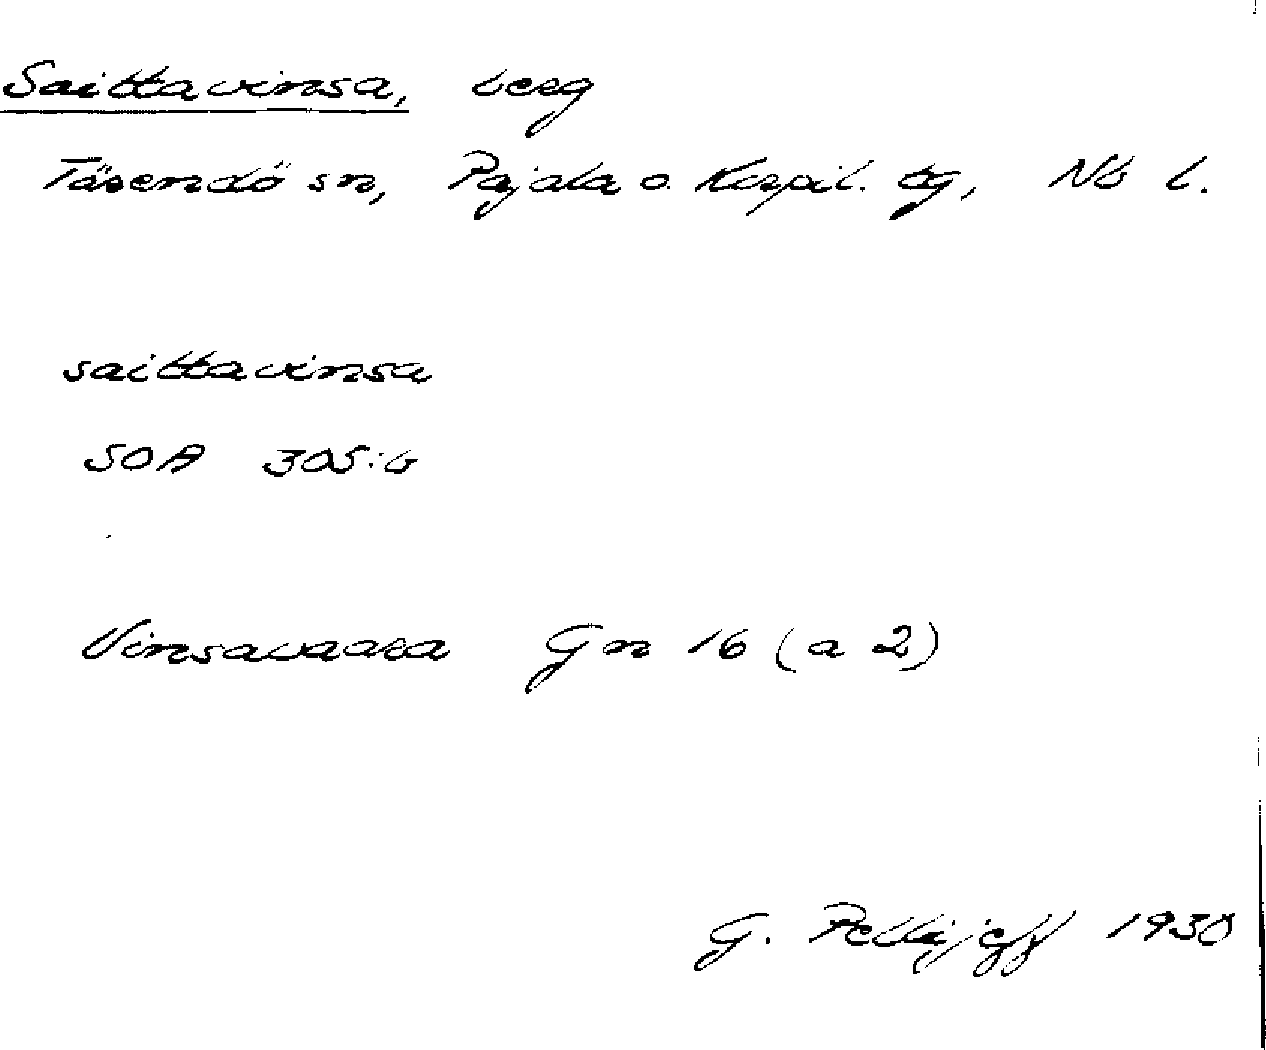 Saittavinsa, berg
Tärendö sn, Pajala o. Korpil. tg, Nb l.
saittavinsa
SOA 305:6
Vinsavaara Gn 16 (a 2)
G. Pellijeff 1930